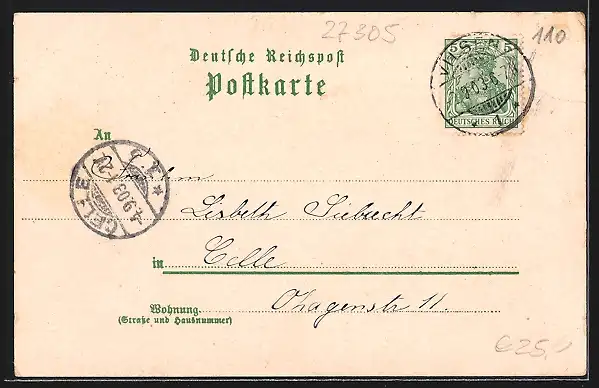 27305
110
Deutsche Reichspost
Postkarte
5 5
DEUTSCHES REICH
An
Fräulein
CELLE
4.9.03.
Lisbeth Siebrecht
in Celle
Hagenstr 11.
Wohnung
(Straße und Hausnummer)
€25,-